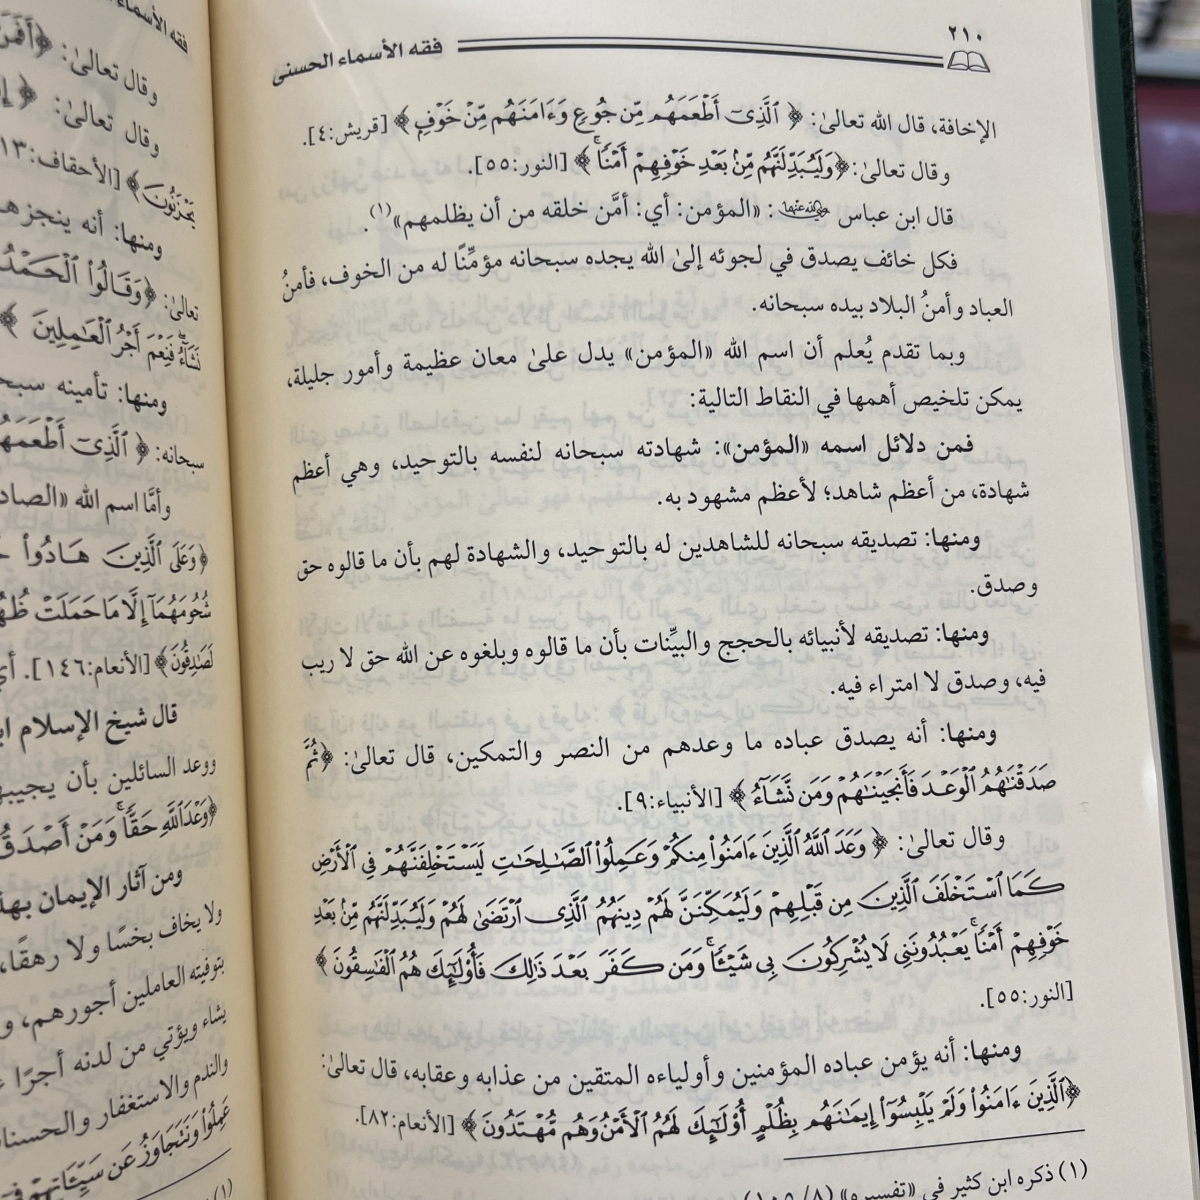 ٢١٠
فقه الأسماء الحسنى
الإخافة، قال الله تعالىٰ: ﴿ٱلَّذِىٓ أَطْعَمَهُم مِّن جُوعٍ وَءَامَنَهُم مِّنْ خَوْفٍ﴾ [قريش:٤].
وقال تعالىٰ: ﴿وَلَيُبَدِّلَنَّهُم مِّنۢ بَعْدِ خَوْفِهِمْ أَمْنًا﴾ [النور:٥٥].
قال ابن عباس رضي الله عنهما: «المؤمن: أي: أمَّن خلقه من أن يظلمهم»(١).
فكل خائف يصدق في لجوئه إلىٰ الله يجده سبحانه مؤمِّنًا له من الخوف، فأمنُ
العباد وأمنُ البلاد بيده سبحانه.
وبما تقدم يُعلم أن اسم الله «المؤمن» يدل علىٰ معان عظيمة وأمور جليلة،
يمكن تلخيص أهمها في النقاط التالية:
فمن دلائل اسمه «المؤمن»: شهادته سبحانه لنفسه بالتوحيد، وهي أعظم
شهادة، من أعظم شاهد؛ لأعظم مشهود به.
ومنها: تصديقه سبحانه للشاهدين له بالتوحيد، والشهادة لهم بأن ما قالوه حق
وصدق.
ومنها: تصديقه لأنبيائه بالحجج والبيِّنات بأن ما قالوه وبلغوه عن الله حق لا ريب
فيه، وصدق لا امتراء فيه.
ومنها: أنه يصدق عباده ما وعدهم من النصر والتمكين، قال تعالىٰ: ﴿ثُمَّ
صَدَقْنَٰهُمُ ٱلْوَعْدَ فَأَنجَيْنَٰهُمْ وَمَن نَّشَآءُ﴾ [الأنبياء:٩].
وقال تعالىٰ: ﴿وَعَدَ ٱللَّهُ ٱلَّذِينَ ءَامَنُوا۟ مِنكُمْ وَعَمِلُوا۟ ٱلصَّٰلِحَٰتِ لَيَسْتَخْلِفَنَّهُمْ فِى ٱلْأَرْضِ
كَمَا ٱسْتَخْلَفَ ٱلَّذِينَ مِن قَبْلِهِمْ وَلَيُمَكِّنَنَّ لَهُمْ دِينَهُمُ ٱلَّذِى ٱرْتَضَىٰ لَهُمْ وَلَيُبَدِّلَنَّهُم مِّنۢ بَعْدِ
خَوْفِهِمْ أَمْنًا ۚ يَعْبُدُونَنِى لَا يُشْرِكُونَ بِى شَيْـًٔا ۚ وَمَن كَفَرَ بَعْدَ ذَٰلِكَ فَأُو۟لَٰٓئِكَ هُمُ ٱلْفَٰسِقُونَ﴾
[النور:٥٥].
ومنها: أنه يؤمن عباده المؤمنين وأولياءه المتقين من عذابه وعقابه، قال تعالىٰ:
﴿ٱلَّذِينَ ءَامَنُوا۟ وَلَمْ يَلْبِسُوٓا۟ إِيمَٰنَهُم بِظُلْمٍ أُو۟لَٰٓئِكَ لَهُمُ ٱلْأَمْنُ وَهُم مُّهْتَدُونَ﴾ [الأنعام:٨٢].
(١) ذكره ابن كثير في «تفسيره» (٨/
فقه الأسماء
وقال تعالىٰ: ﴿
وقال تعالىٰ: ﴿
يَحْزَنُونَ﴾ [الأحقاف:١٣
ومنها: أنه ينجزهم
تعالىٰ: ﴿وَقَالُوا۟ ٱلْحَمْدُ
نَشَآءُ ۖ فَنِعْمَ أَجْرُ ٱلْعَٰمِلِينَ﴾
ومنها: تأمينه
سبحانه: ﴿ٱلَّذِىٓ أَطْعَمَهُم
وأمَّا اسم الله «
﴿وَعَلَى ٱلَّذِينَ هَادُوا۟
شُحُومَهُمَآ إِلَّا مَا حَمَلَتْ
لَصَٰدِقُونَ﴾ [الأنعام:١٤٦]. أي
قال شيخ الإسلام
ووعد السائلين بأن
﴿وَعْدَ ٱللَّهِ حَقًّا ۚ وَمَنْ
ومن آثار الإيمان
ولا يخاف بخسًا ولا رهقًا،
بتوفيته العاملين أجورهم، و
يشاء ويؤتي من لدنه أجرًا
والندم والاستغفار
عَمِلُوا۟ وَنَتَجَاوَزُ عَن سَيِّـَٔاتِهِمْ
(١)